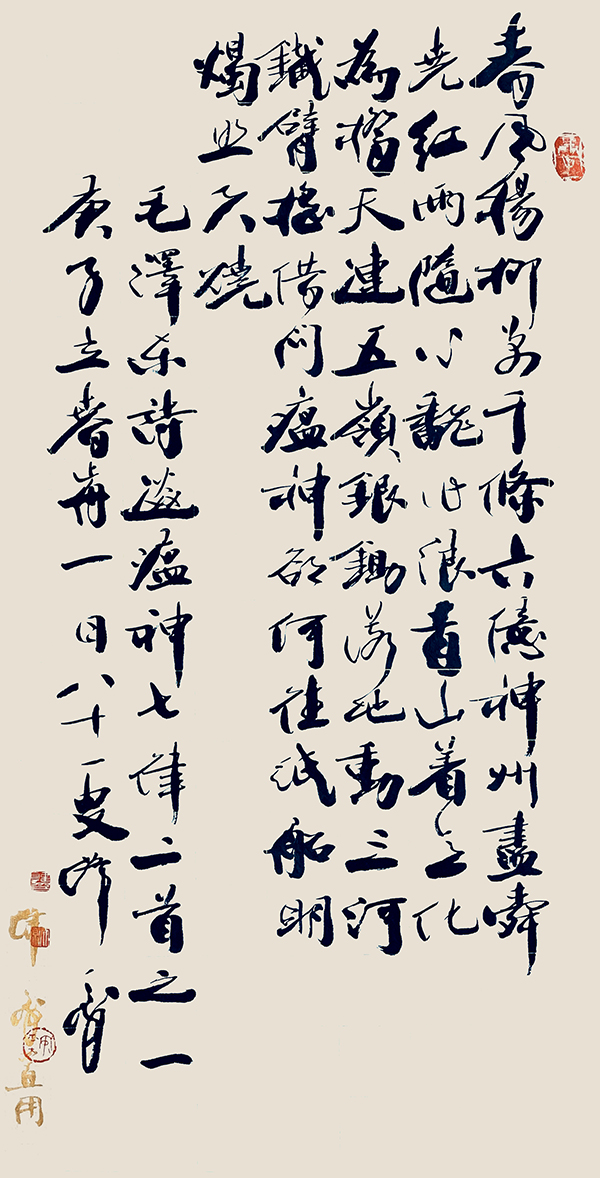 春風楊柳萬千條六億神州盡舜
堯紅雨隨心翻作浪青山着意化
為橋天連五嶺銀鋤落地動三河
鐵臂搖借問瘟神欲何往紙船明
燭照天燒
毛澤東詩送瘟神七律二首之一
庚子立春前一日八十一叟